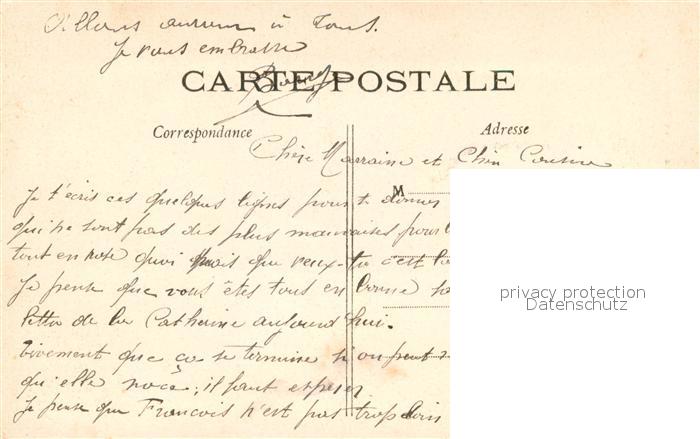 à Tous.
Je vous embrasse
CARTE POSTALE
Correspondance
Adresse
Chère Marraine et Cher Cousine
M
Je t'écris ces quelques lignes pour te donner
qui ne sont pas des plus mauvaises pour l
tout en rose quoi que veux-tu c'est la
Je pense que vous êtes tous en bonne
lettre de la Catherine aujourd'hui.
Vivement que ça se termine si on peut
qu'elle noce, il faut espérer
Je pense que Francois n'est pas trop loin
privacy protection
Datenschutz